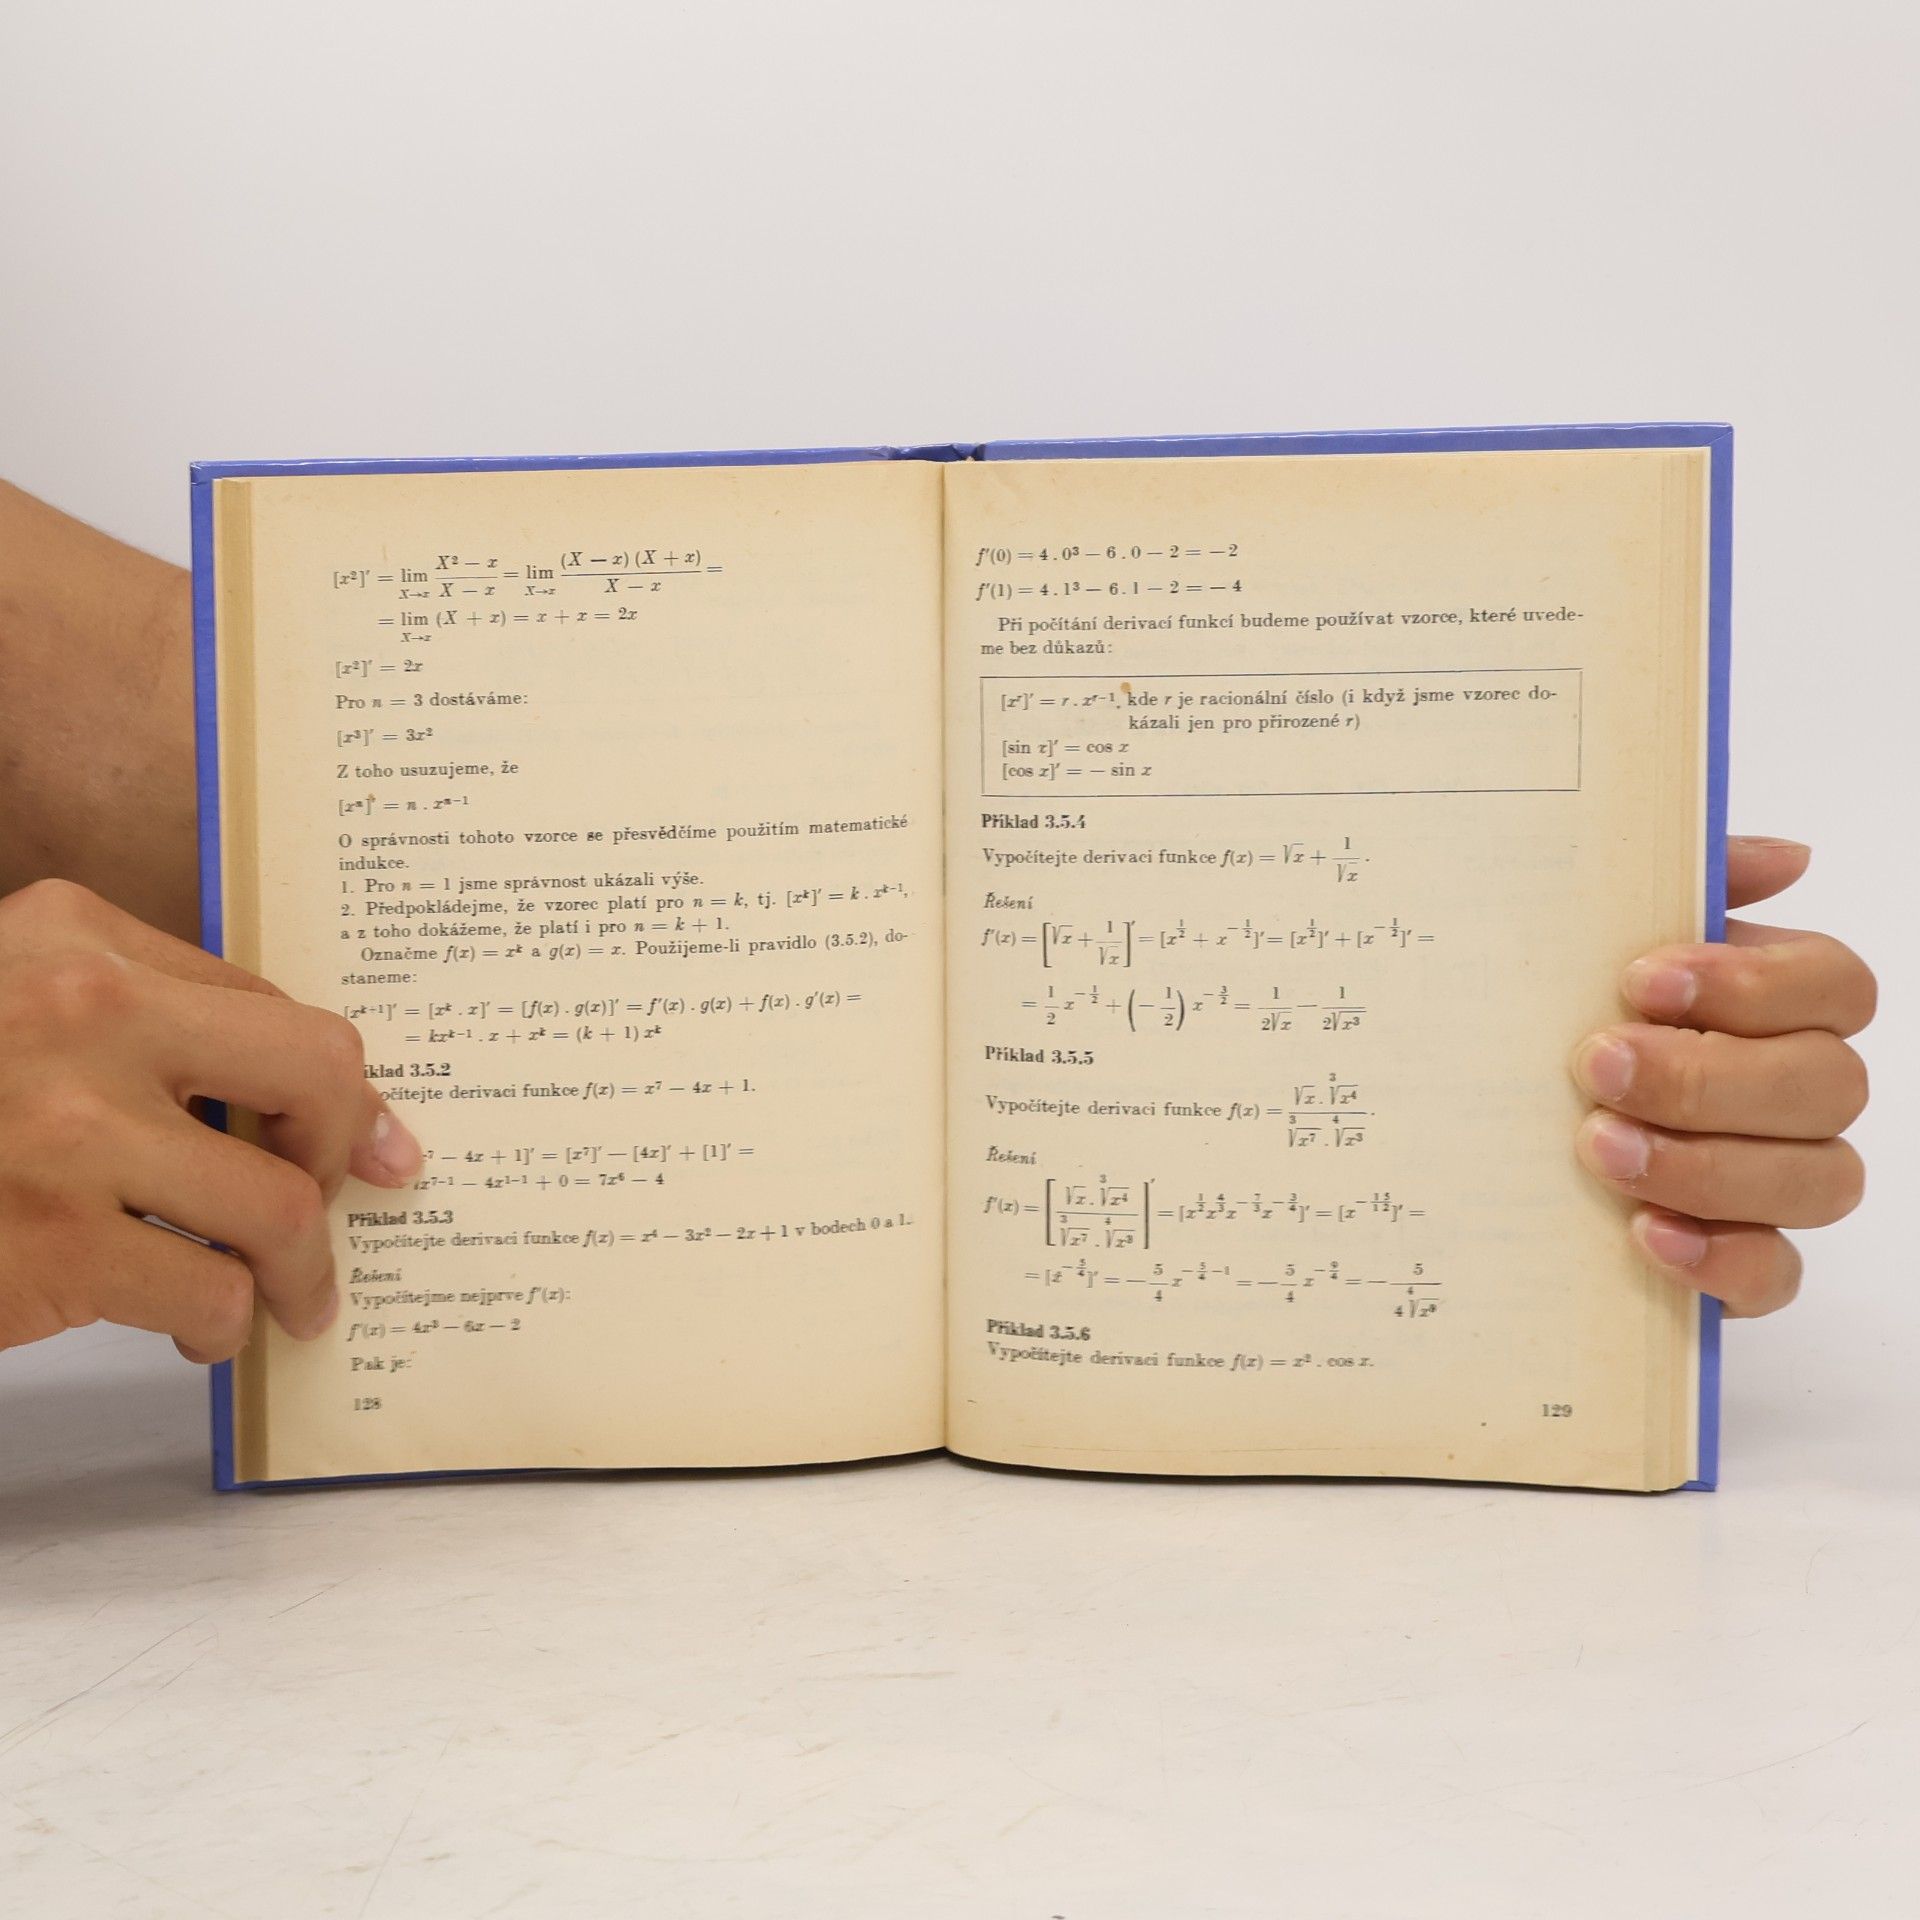 [x²]′ = lim X→x (X² − x)/(X − x) = lim X→x ((X − x) (X + x))/(X − x) =
= lim X→x (X + x) = x + x = 2x
[x²]′ = 2x
Pro n = 3 dostáváme:
[x³]′ = 3x²
Z toho usuzujeme, že
[xⁿ]′ = n . xⁿ⁻¹
O správnosti tohoto vzorce se přesvědčíme použitím matematické
indukce.
1. Pro n = 1 jsme správnost ukázali výše.
2. Předpokládejme, že vzorec platí pro n = k, tj. [xᵏ]′ = k . xᵏ⁻¹,
a z toho dokážeme, že platí i pro n = k + 1.
Označme f(x) = xᵏ a g(x) = x. Použijeme-li pravidlo (3.5.2), do-
staneme:
[xᵏ⁺¹]′ = [xᵏ . x]′ = [f(x) . g(x)]′ = f′(x) . g(x) + f(x) . g′(x) =
= kxᵏ⁻¹ . x + xᵏ = (k + 1) xᵏ
íklad 3.5.2
očítejte derivaci funkce f(x) = x⁷ − 4x + 1.
⁷ − 4x + 1]′ = [x⁷]′ − [4x]′ + [1]′ =
x⁷⁻¹ − 4x¹⁻¹ + 0 = 7x⁶ − 4
Příklad 3.5.3
Vypočítejte derivaci funkce f(x) = x⁴ − 3x² − 2x + 1 v bodech 0 a 1.
Řešení
Vypočítejme nejprve f′(x):
f′(x) = 4x³ − 6x − 2
Pak je:
128
f′(0) = 4 . 0³ − 6 . 0 − 2 = −2
f′(1) = 4 . 1³ − 6 . 1 − 2 = − 4
Při počítání derivací funkcí budeme používat vzorce, které uvede-
me bez důkazů:
[xʳ]′ = r . xʳ⁻¹, kde r je racionální číslo (i když jsme vzorec do-
kázali jen pro přirozené r)
[sin x]′ = cos x
[cos x]′ = − sin x
Příklad 3.5.4
Vypočítejte derivaci funkce f(x) = √x + 1/√x .
Řešení
f′(x) = [√x + 1/√x]′ = [x^(1/2) + x^(−1/2)]′ = [x^(1/2)]′ + [x^(−1/2)]′ =
= 1/2 x^(−1/2) + (−1/2) x^(−3/2) = 1/(2√x) − 1/(2√x³)
Příklad 3.5.5
Vypočítejte derivaci funkce f(x) = (√x . ³√x⁴)/(³√x⁷ . ⁴√x³) .
Řešení
f′(x) = [(√x . ³√x⁴)/(³√x⁷ . ⁴√x³)]′ = [x^(1/2) x^(4/3) x^(−7/3) x^(−3/4)]′ = [x^(−15/12)]′ =
= [x^(−5/4)]′ = − 5/4 x^(−5/4 − 1) = − 5/4 x^(−9/4) = − 5/(4 ⁴√x⁹)
Příklad 3.5.6
Vypočítejte derivaci funkce f(x) = x² . cos x.
129